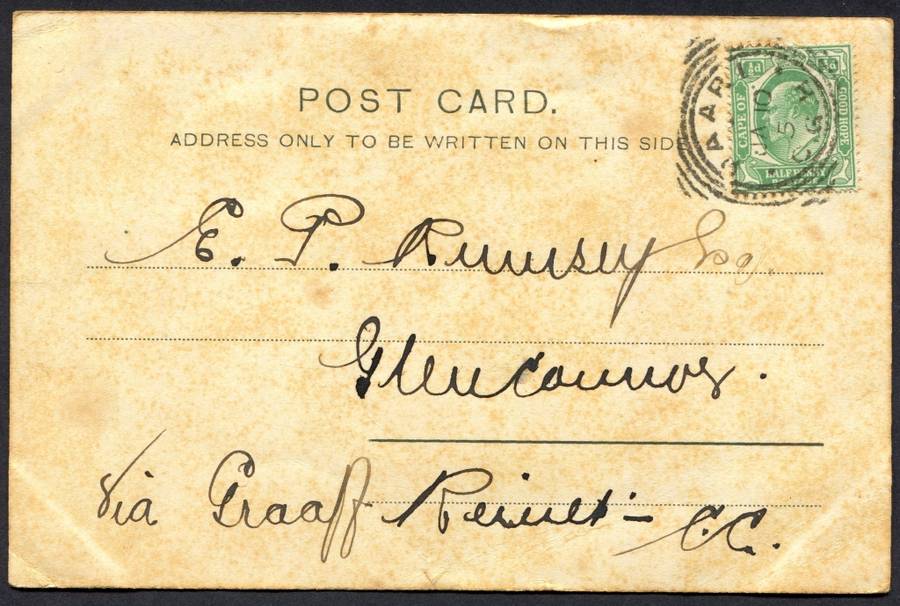 POST CARD.
ADDRESS ONLY TO BE WRITTEN ON THIS SIDE
½d
CAPE OF
GOOD HOPE
HALFPENNY
JA 10
E. P. Rumsey Esq.
Glenconnor.
Via Graaff Reinet - C.C.